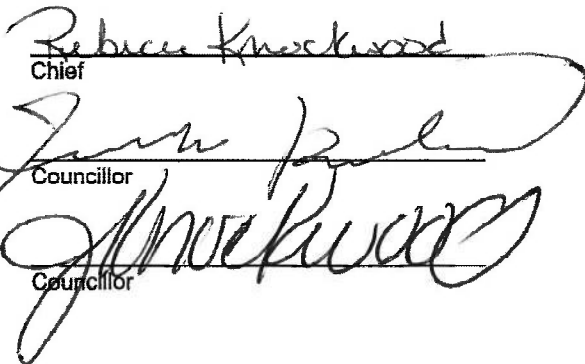 Rebecca Knockwood
Chief
Councillor
J Knockwood
Councillor